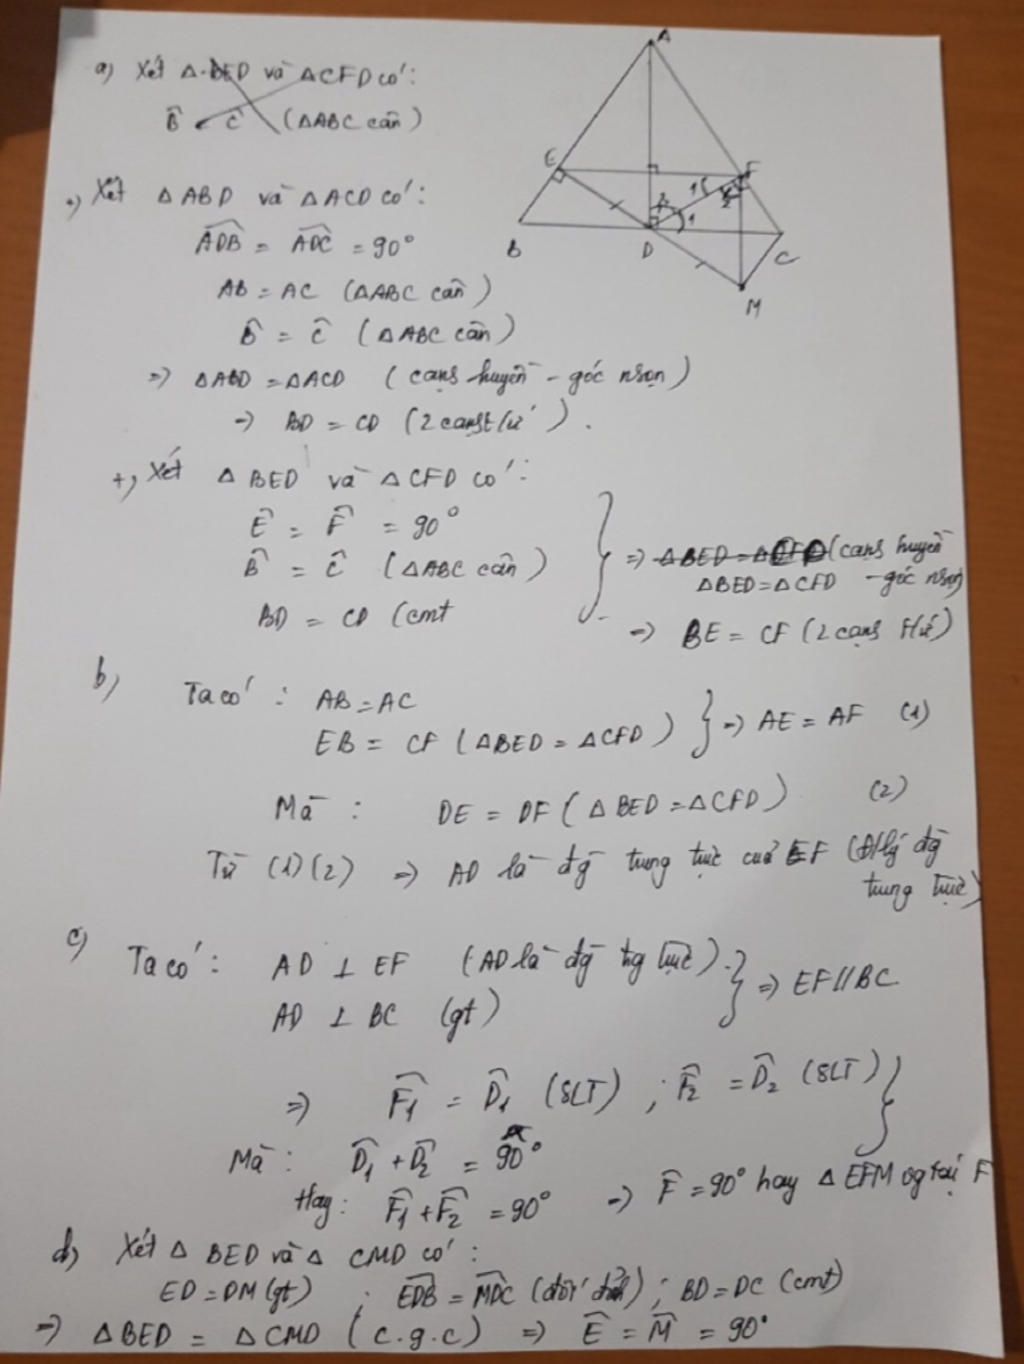 a) Xét Δ BED và Δ CFD có:
B̂ = Ĉ (ΔABC cân)
A
E
F
1
2
2
1
B
D
C
M
*) Xét Δ ABD và Δ ACD có:
ADB̂ = ADĈ = 90°
AB = AC (ΔABC cân)
B̂ = Ĉ (ΔABC cân)
=> ΔABD = ΔACD (cạnh huyền - góc nhọn)
=> BD = CD (2 cạnh t/ứ).
+, Xét Δ BED và Δ CFD có:
Ê = F̂ = 90°
B̂ = Ĉ (ΔABC cân)
BD = CD (cmt
} => ΔBED = ΔCFD (cạnh huyền
ΔBED = ΔCFD - góc nhọn)
=> BE = CF (2 cạnh t/ứ)
b) Ta có: AB = AC
EB = CF (ΔBED = ΔCFD) } => AE = AF (1)
Mà: DE = DF (ΔBED = ΔCFD) (2)
Từ (1)(2) => AD là đg̀ trung trực của EF (Đ/lý đg̀
trung trực)
c) Ta có: AD ⊥ EF (AD là đg̀ tr̀g trực).
AD ⊥ BC (gt) } => EF // BC
=> F̂1 = D̂1 (SLT) ; F̂2 = D̂2 (SLT) }
Mà: D̂1 + D̂2 = 90°
Hay: F̂1 + F̂2 = 90° => F̂ = 90° hay Δ EFM vg tại F
d) Xét Δ BED và Δ CMD có:
ED = DM (gt) ; EDB̂ = MDĈ (đối đỉnh) ; BD = DC (cmt)
=> ΔBED = ΔCMD (c.g.c) => Ê = M̂ = 90°